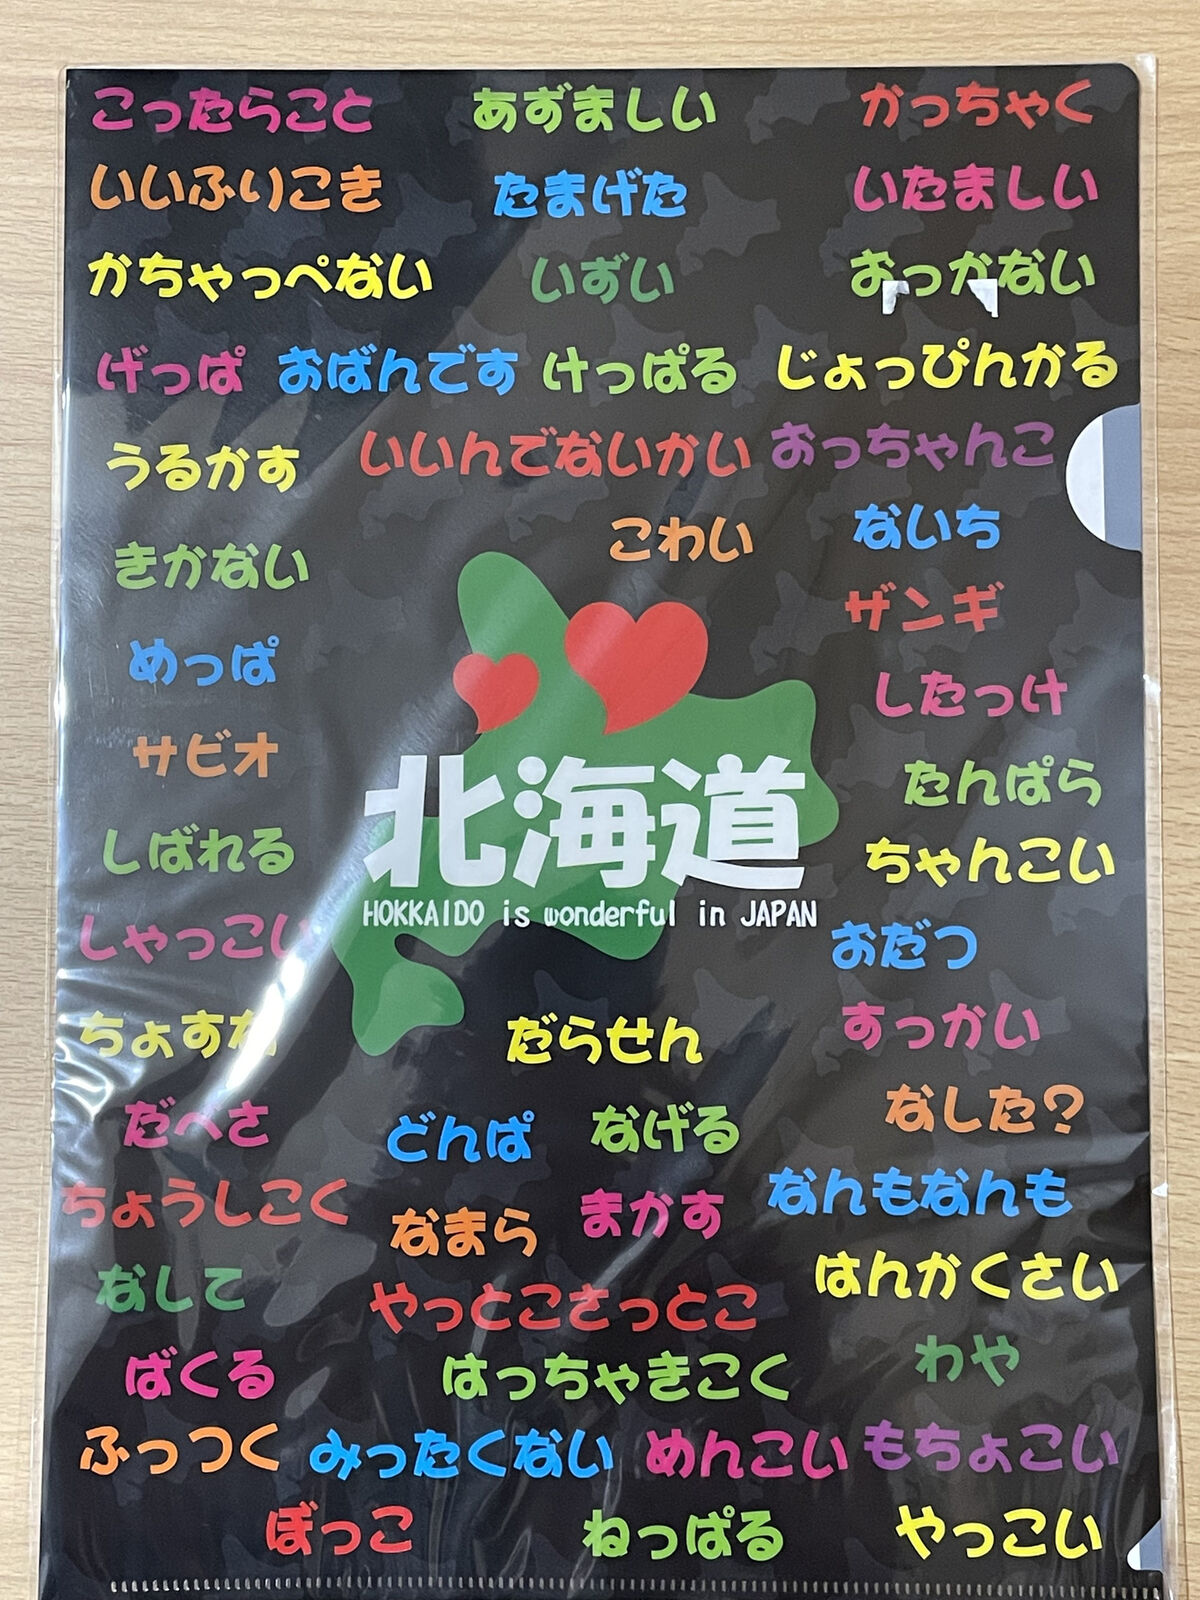 こったらこと あずましい がっちゃく
いいふりこき たまげた いたましい
かちゃっぺない いずい おっかない
げっぱ おばんです けっぱる じょっぴんかる
うるかす いいんでないかい おっちゃんこ
きかない こわい ないち
ザンギ
めっぱ
したっけ
サビオ
たんぱら
北海道
しばれる ちゃんこい
HOKKAIDO is wonderful in JAPAN
しゃっこい おだつ
ちょすな だらせん すっかい
だべさ どんぱ なげる なした?
ちょうしこく なまら まかす なんもなんも
なして やっとこさっとこ はんかくさい
ばくる はっちゃきこく わや
ふっつく みったくない めんこい もちょこい
ぼっこ ねっぱる やっこい